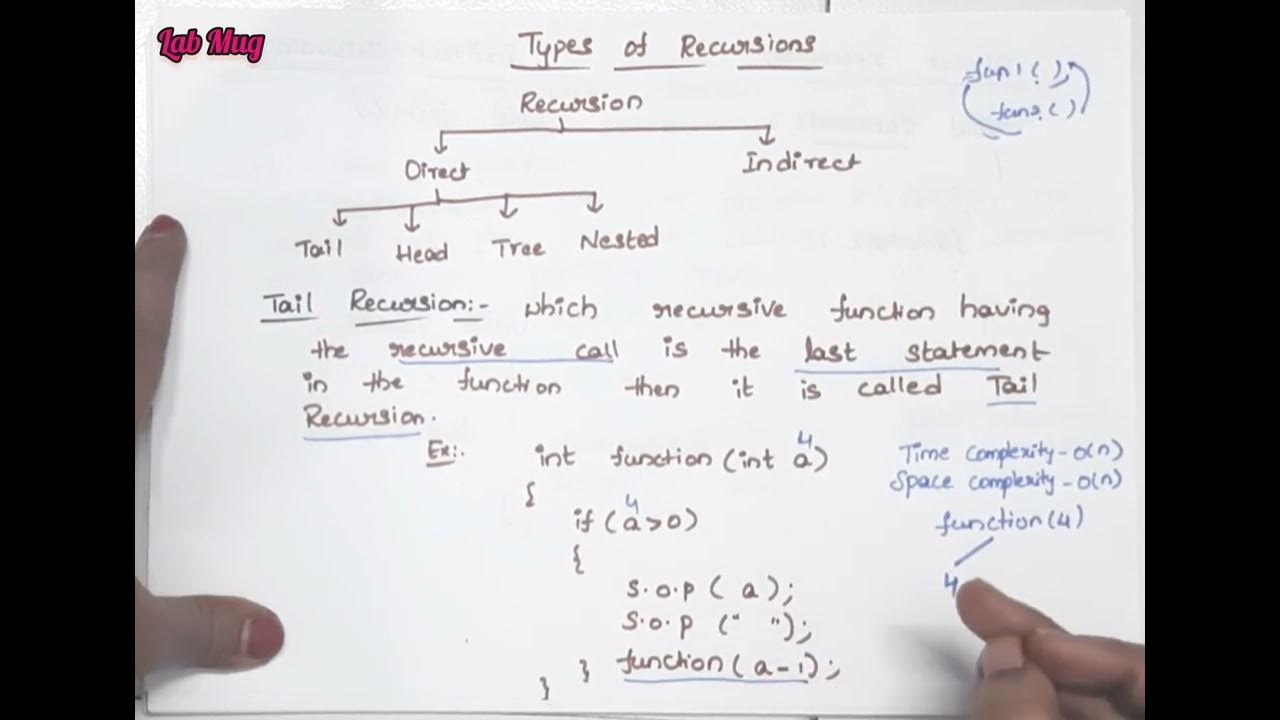 Lab Mug
Types of Recursions
Recursion
fun1();
fun2()
Direct
Indirect
Tail Head Tree Nested
Tail Recursion:- which recursive function having
the recursive call is the last statement
in the function then it is called Tail
Recursion.
Ex:.
4
int function (int a)
{
4
if (a>0)
{
S.o.p ( a );
S.o.p (" ");
function ( a-1 );
}
}
Time complexity - O(n)
Space complexity - O(n)
function (4)
4